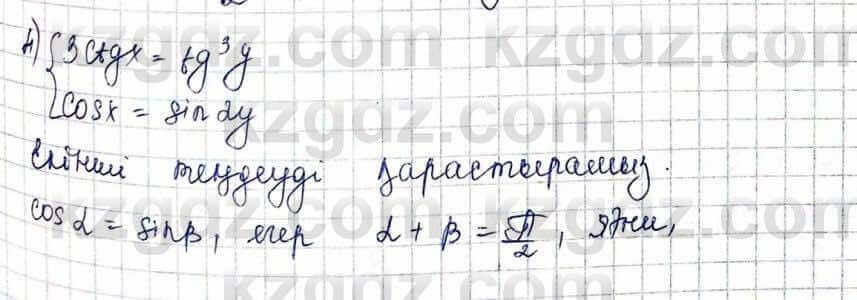 4) { 3ctgx = tg³y
cosx = sin2y
Екінші теңдеуді қарастырамыз.
cosα = sinβ, егер α + β = π/2, яғни,